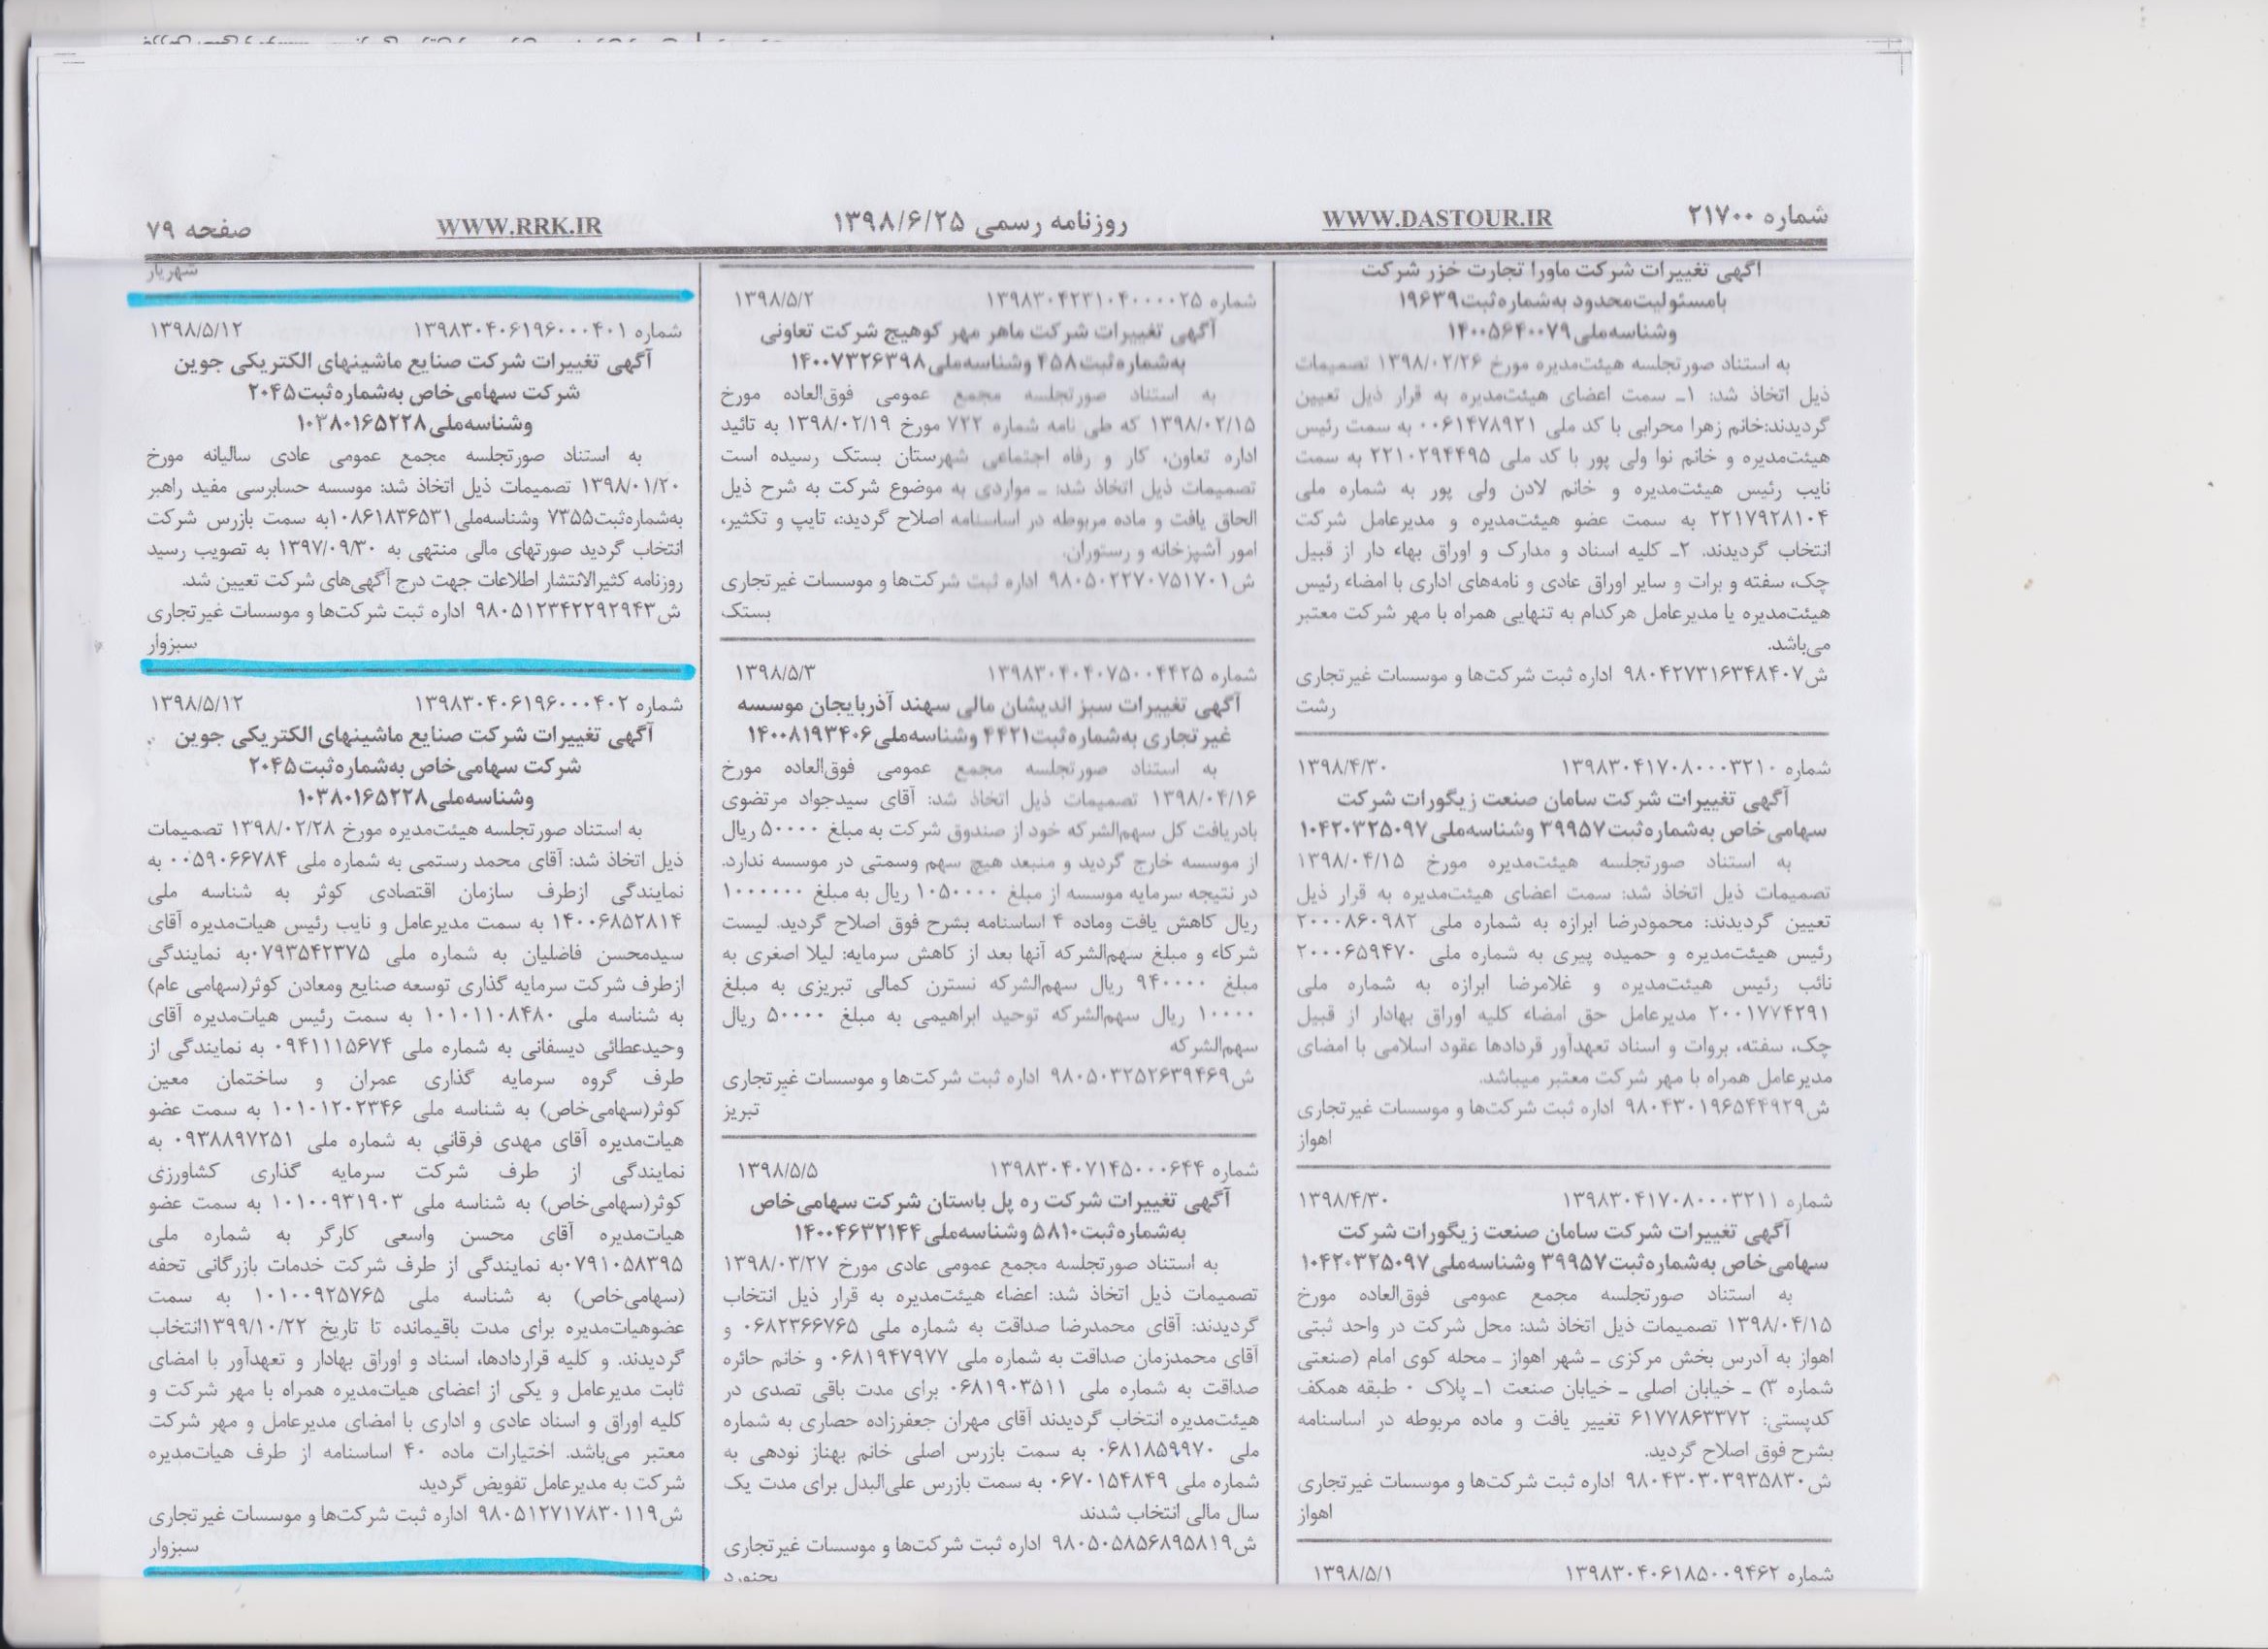 شماره ۲۱۷۰۰
WWW.DASTOUR.IR
روزنامه رسمی ۱۳۹۸/۶/۲۵
WWW.RRK.IR
صفحه ۷۹
آگهی تغییرات شرکت ماورا تجارت خزر شرکت
بامسئولیت‌محدود به‌شماره‌ثبت۱۹۶۳۹
وشناسه‌ملی۱۴۰۰۵۶۴۰۰۷۹
به استناد صورتجلسه هیئت‌مدیره مورخ ۱۳۹۸/۰۲/۲۶ تصمیمات
ذیل اتخاذ شد: ۱ـ سمت اعضای هیئت‌مدیره به قرار ذیل تعیین
گردیدند:خانم زهرا محرابی با کد ملی ۰۰۶۱۴۷۸۹۲۱ به سمت رئیس
هیئت‌مدیره و خانم نوا ولی پور با کد ملی ۲۲۱۰۲۹۴۴۹۵ به سمت
نایب رئیس هیئت‌مدیره و خانم لادن ولی پور به شماره ملی
۲۲۱۷۹۲۸۱۰۴ به سمت عضو هیئت‌مدیره و مدیرعامل شرکت
انتخاب گردیدند. ۲ـ کلیه اسناد و مدارک و اوراق بهاء دار از قبیل
چک، سفته و برات و سایر اوراق عادی و نامه‌های اداری با امضاء رئیس
هیئت‌مدیره یا مدیرعامل هرکدام به تنهایی همراه با مهر شرکت معتبر
می‌باشد.
ش۹۸۰۴۲۷۳۱۶۳۴۸۴۰۷ اداره ثبت شرکت‌ها و موسسات غیرتجاری
رشت
شماره ۱۳۹۸۳۰۴۱۷۰۸۰۰۰۳۲۱۰ ۱۳۹۸/۴/۳۰
آگهی تغییرات شرکت سامان صنعت زیگورات شرکت
سهامی‌خاص به‌شماره‌ثبت۳۹۹۵۷ وشناسه‌ملی۱۰۴۲۰۳۲۵۰۹۷
به استناد صورتجلسه هیئت‌مدیره مورخ ۱۳۹۸/۰۴/۱۵
تصمیمات ذیل اتخاذ شد: سمت اعضای هیئت‌مدیره به قرار ذیل
تعیین گردیدند: محمودرضا ابرازه به شماره ملی ۲۰۰۰۸۶۰۹۸۲
رئیس هیئت‌مدیره و حمیده پیری به شماره ملی ۲۰۰۰۶۵۹۴۷۰
نائب رئیس هیئت‌مدیره و غلامرضا ابرازه به شماره ملی
۲۰۰۱۷۷۴۲۹۱ مدیرعامل حق امضاء کلیه اوراق بهادار از قبیل
چک، سفته، بروات و اسناد تعهدآور قردادها عقود اسلامی با امضای
مدیرعامل همراه با مهر شرکت معتبر میباشد.
ش۹۸۰۴۳۰۱۹۶۵۴۴۹۲۹ اداره ثبت شرکت‌ها و موسسات غیرتجاری
اهواز
شماره ۱۳۹۸۳۰۴۱۷۰۸۰۰۰۳۲۱۱ ۱۳۹۸/۴/۳۰
آگهی تغییرات شرکت سامان صنعت زیگورات شرکت
سهامی‌خاص به‌شماره‌ثبت۳۹۹۵۷ وشناسه‌ملی۱۰۴۲۰۳۲۵۰۹۷
به استناد صورتجلسه مجمع عمومی فوق‌العاده مورخ
۱۳۹۸/۰۴/۱۵ تصمیمات ذیل اتخاذ شد: محل شرکت در واحد ثبتی
اهواز به آدرس بخش مرکزی ـ شهر اهواز ـ محله کوی امام (صنعتی
شماره ۳) ـ خیابان اصلی ـ خیابان صنعت ۱ـ پلاک ۰ طبقه همکف
کدپستی: ۶۱۷۷۸۶۳۳۷۲ تغییر یافت و ماده مربوطه در اساسنامه
بشرح فوق اصلاح گردید.
ش۹۸۰۴۳۰۳۰۳۹۳۵۸۳۰ اداره ثبت شرکت‌ها و موسسات غیرتجاری
اهواز
شماره ۱۳۹۸۳۰۴۰۶۱۸۵۰۰۹۴۶۲ ۱۳۹۸/۵/۱
شماره ۱۳۹۸۳۰۴۲۳۱۰۴۰۰۰۰۲۵ ۱۳۹۸/۵/۲
آگهی تغییرات شرکت ماهر مهر کوهیج شرکت تعاونی
به‌شماره‌ثبت۴۵۸ وشناسه‌ملی۱۴۰۰۷۳۲۶۳۹۸
به استناد صورتجلسه مجمع عمومی فوق‌العاده مورخ
۱۳۹۸/۰۲/۱۵ که طی نامه شماره ۷۲۲ مورخ ۱۳۹۸/۰۲/۱۹ به تائید
اداره تعاون، کار و رفاه اجتماعی شهرستان بستک رسیده است
تصمیمات ذیل اتخاذ شد: ـ مواردی به موضوع شرکت به شرح ذیل
الحاق یافت و ماده مربوطه در اساسنامه اصلاح گردید:، تایپ و تکثیر،
امور آشپزخانه و رستوران.
ش۹۸۰۵۰۲۲۷۰۷۵۱۷۰۱ اداره ثبت شرکت‌ها و موسسات غیرتجاری
بستک
شماره ۱۳۹۸۳۰۴۰۴۰۷۵۰۰۴۴۲۵ ۱۳۹۸/۵/۳
آگهی تغییرات سبز اندیشان مالی سهند آذربایجان موسسه
غیرتجاری به‌شماره‌ثبت۴۴۲۱ وشناسه‌ملی۱۴۰۰۸۱۹۳۴۰۶
به استناد صورتجلسه مجمع عمومی فوق‌العاده مورخ
۱۳۹۸/۰۴/۱۶ تصمیمات ذیل اتخاذ شد: آقای سیدجواد مرتضوی
بادریافت کل سهم‌الشرکه خود از صندوق شرکت به مبلغ ۵۰۰۰۰ ریال
از موسسه خارج گردید و منبعد هیچ سهم وسمتی در موسسه ندارد.
در نتیجه سرمایه موسسه از مبلغ ۱۰۵۰۰۰۰ ریال به مبلغ ۱۰۰۰۰۰۰
ریال کاهش یافت وماده ۴ اساسنامه بشرح فوق اصلاح گردید. لیست
شرکاء و مبلغ سهم‌الشرکه آنها بعد از کاهش سرمایه: لیلا اصغری به
مبلغ ۹۴۰۰۰۰ ریال سهم‌الشرکه نسترن کمالی تبریزی به مبلغ
۱۰۰۰۰ ریال سهم‌الشرکه توحید ابراهیمی به مبلغ ۵۰۰۰۰ ریال
سهم‌الشرکه
ش۹۸۰۵۰۳۲۵۲۶۳۹۴۶۹ اداره ثبت شرکت‌ها و موسسات غیرتجاری
تبریز
شماره ۱۳۹۸۳۰۴۰۷۱۴۵۰۰۰۶۴۴ ۱۳۹۸/۵/۵
آگهی تغییرات شرکت ره پل باستان شرکت سهامی‌خاص
به‌شماره‌ثبت۵۸۱۰ وشناسه‌ملی۱۴۰۰۴۶۳۲۱۴۴
به استناد صورتجلسه مجمع عمومی عادی مورخ ۱۳۹۸/۰۳/۲۷
تصمیمات ذیل اتخاذ شد: اعضاء هیئت‌مدیره به قرار ذیل انتخاب
گردیدند: آقای محمدرضا صداقت به شماره ملی ۰۶۸۲۳۶۶۷۶۵ و
آقای محمدزمان صداقت به شماره ملی ۰۶۸۱۹۴۷۹۷۷ و خانم حائره
صداقت به شماره ملی ۰۶۸۱۹۰۳۵۱۱ برای مدت باقی تصدی در
هیئت‌مدیره انتخاب گردیدند آقای مهران جعفرزاده حصاری به شماره
ملی ۰۶۸۱۸۵۹۹۷۰ به سمت بازرس اصلی خانم بهناز نودهی به
شماره ملی ۰۶۷۰۱۵۴۸۴۹ به سمت بازرس علی‌البدل برای مدت یک
سال مالی انتخاب شدند
ش۹۸۰۵۰۵۸۵۶۸۹۵۸۱۹ اداره ثبت شرکت‌ها و موسسات غیرتجاری
بجنورد
شهریار
شماره ۱۳۹۸۳۰۴۰۶۱۹۶۰۰۰۴۰۱ ۱۳۹۸/۵/۱۲
آگهی تغییرات شرکت صنایع ماشینهای الکتریکی جوین
شرکت سهامی‌خاص به‌شماره‌ثبت۲۰۴۵
وشناسه‌ملی۱۰۳۸۰۱۶۵۲۲۸
به استناد صورتجلسه مجمع عمومی عادی سالیانه مورخ
۱۳۹۸/۰۱/۲۰ تصمیمات ذیل اتخاذ شد: موسسه حسابرسی مفید راهبر
به‌شماره‌ثبت۷۳۵۵ وشناسه‌ملی۱۰۸۶۱۸۳۶۵۳۱به سمت بازرس شرکت
انتخاب گردید صورتهای مالی منتهی به ۱۳۹۷/۰۹/۳۰ به تصویب رسید
روزنامه کثیرالانتشار اطلاعات جهت درج آگهی‌های شرکت تعیین شد.
ش۹۸۰۵۱۲۳۴۲۲۹۲۹۴۳ اداره ثبت شرکت‌ها و موسسات غیرتجاری
سبزوار
شماره ۱۳۹۸۳۰۴۰۶۱۹۶۰۰۰۴۰۲ ۱۳۹۸/۵/۱۲
آگهی تغییرات شرکت صنایع ماشینهای الکتریکی جوین
شرکت سهامی‌خاص به‌شماره‌ثبت۲۰۴۵
وشناسه‌ملی۱۰۳۸۰۱۶۵۲۲۸
به استناد صورتجلسه هیئت‌مدیره مورخ ۱۳۹۸/۰۲/۲۸ تصمیمات
ذیل اتخاذ شد: آقای محمد رستمی به شماره ملی ۰۰۵۹۰۶۶۷۸۴ به
نمایندگی ازطرف سازمان اقتصادی کوثر به شناسه ملی
۱۴۰۰۶۸۵۲۸۱۴ به سمت مدیرعامل و نایب رئیس هیات‌مدیره آقای
سیدمحسن فاضلیان به شماره ملی ۰۷۹۳۵۴۲۳۷۵به نمایندگی
ازطرف شرکت سرمایه گذاری توسعه صنایع ومعادن کوثر(سهامی عام)
به شناسه ملی ۱۰۱۰۱۱۰۸۴۸۰ به سمت رئیس هیات‌مدیره آقای
وحیدعطائی دیسفانی به شماره ملی ۰۹۴۱۱۱۵۶۷۴ به نمایندگی از
طرف گروه سرمایه گذاری عمران و ساختمان معین
کوثر(سهامی‌خاص) به شناسه ملی ۱۰۱۰۱۲۰۲۳۴۶ به سمت عضو
هیات‌مدیره آقای مهدی فرقانی به شماره ملی ۰۹۳۸۸۹۷۲۵۱ به
نمایندگی از طرف شرکت سرمایه گذاری کشاورزی
کوثر(سهامی‌خاص) به شناسه ملی ۱۰۱۰۰۹۳۱۹۰۳ به سمت عضو
هیات‌مدیره آقای محسن واسعی کارگر به شماره ملی
۰۷۹۱۰۵۸۳۹۵به نمایندگی از طرف شرکت خدمات بازرگانی تحفه
(سهامی‌خاص) به شناسه ملی ۱۰۱۰۰۹۲۵۷۶۵ به سمت
عضوهیات‌مدیره برای مدت باقیمانده تا تاریخ ۱۳۹۹/۱۰/۲۲انتخاب
گردیدند. و کلیه قراردادها، اسناد و اوراق بهادار و تعهدآور با امضای
ثابت مدیرعامل و یکی از اعضای هیات‌مدیره همراه با مهر شرکت و
کلیه اوراق و اسناد عادی و اداری با امضای مدیرعامل و مهر شرکت
معتبر می‌باشد. اختیارات ماده ۴۰ اساسنامه از طرف هیات‌مدیره
شرکت به مدیرعامل تفویض گردید
ش۹۸۰۵۱۲۷۱۷۸۳۰۱۱۹ اداره ثبت شرکت‌ها و موسسات غیرتجاری
سبزوار